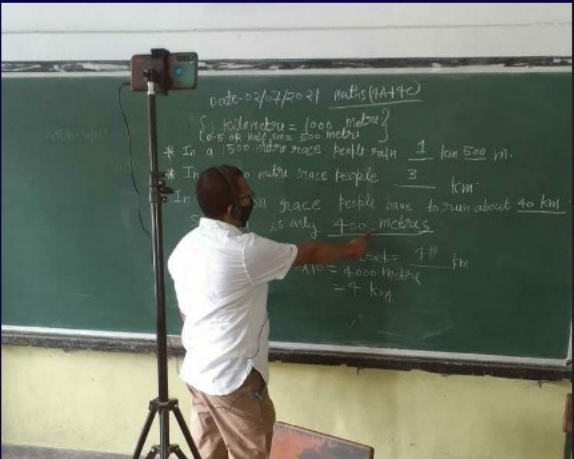 Date-02/07/2021 Maths (4A+4C)
{ 1 Kilometre = 1000 metre }
{ 0.5 OR Half km = 500 metre
* In a 1500 metre race people run 1 km 500 m.
* In metre race people 3 km.
In race people have to run about 40 km.
is only 400 metres
track = 4 km
x10 = 4000 metre
= 4 km